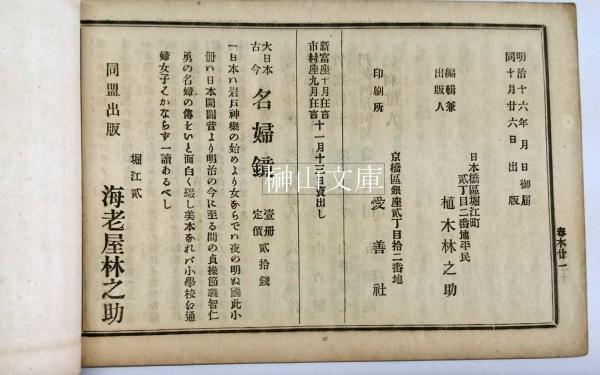 明治十六年 月 日御届
同 十月廿六日出版
編輯兼
出版人
日本橋區堀江町
貳丁目二番地平民
植木林之助
京橋區銀座貳丁目拾二番地
印刷所 愛善社
新富座十月狂言
市村座九月狂言 十一月十三日賣出し
大日本
古今 名婦鏡 壹册貳拾錢
定價
一日本ハ岩戸神樂の始めより女ならでハ夜の明ぬ國此小
冊ハ日本開闢昔より明治の今に至る間の貞操節義智仁
勇の名婦の傳をいと面白く綴し美本なれバ小學校を通
婦女子ハかならず一讀あるべし
堀江貳
同盟出版 海老屋林之助
春木廿一
榊山文庫